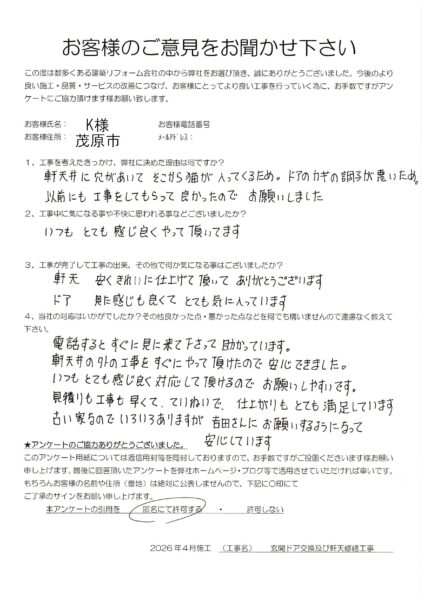 お客様のご意見をお聞かせ下さい
この度は数多くある建築リフォーム会社の中から弊社をお選び頂き、誠にありがとうございました。今後のより
良い施工・品質・サービスの改善につなげ、お客様にとってより良い工事を行っていく為に、お手数ですがアン
ケートにご協力頂けます様お願い致します。
お客様氏名： K様 お客様電話番号
お客様住所： 茂原市 メールアドレス：
1、工事を考えたきっかけ、弊社に決めた理由は何ですか？
軒天井に穴があいて そこから猫が入ってくるため。ドアのカギの調子が悪いため。
以前にも工事をしてもらって良かったので お願いしました
2、工事中に気になる事や不快に思われる事などございましたか？
いつも とても感じ良くやって頂いてます
3、工事が完了して工事の出来、その他で何か気になる事はございましたか？
軒天 安くきれいに仕上げて頂いて ありがとうございます
ドア 見た感じも良くて とても気に入っています
4、当社の対応はいかがでしたか？その他良かった点・悪かった点などを何でも構いませんので遠慮なく教えて
下さい。
電話するとすぐに見に来て下さって助かっています。
軒天井の外の工事をすぐにやって頂けたので安心できました。
いつもとても感じ良く対応して頂けるので お願いしやすいです。
見積りも工事も早くて、ていねいで、仕上がりもとても満足しています
古い家なのでいろいろありますが 吉田さんにお願いするようになって
安心しています
★アンケートのご協力ありがとうございました。
このアンケート用紙については返信用封筒を同封しておりますので、お手数ですがご投函くださいます様お願い
申し上げます。最後に回答頂いたアンケートを弊社ホームページ・ブログ等で活用させていただければ幸いです。
もちろんお客様の名前や住所（番地）は絶対に公表しませんので、下記に○印にて
ご了承のサインをお願い申し上げます。
本アンケートの引用を 匿名にて許可する ・ 許可しない
2026年4月施工 （工事名） 玄関ドア交換及び軒天修繕工事